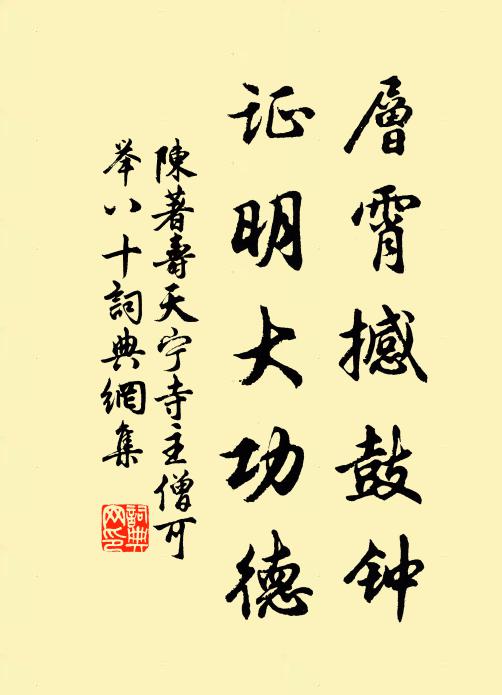 層霄撼鼓钟
证明大功德
陳著壽天宁寺主僧可
举八十詞典網集
詞典網印